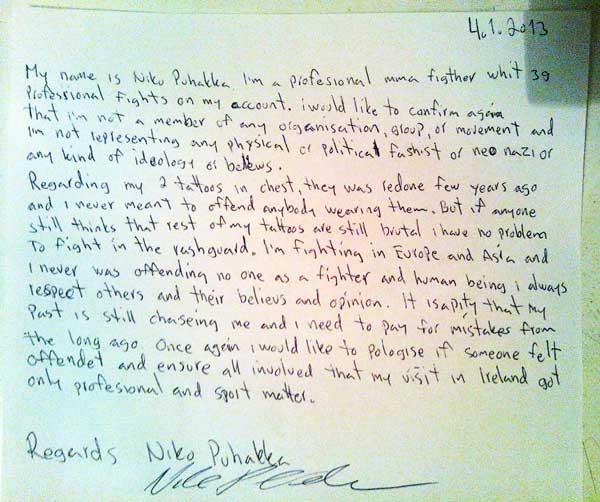 4.1.2013
My name is Niko Puhakka. I'm a profesional mma figther whit 39
Professional Fights on my account. i would like to confirm again
that i'm not a member of any organisation, group, or movement and
I'm not representing any physical or political fashist or neo nazi or
any kind of ideology or believs.
Regarding my 2 tattoos in chest, they was redone few years ago
and I never meant to offend anybody wearing them. But if anyone
still thinks that rest of my tattoos are still brutal i have no problem
To fight in the rashguard. I'm fighting in Europe and Asia and
I never was offending no one as a fighter and human being i always
respect others and their believs and opinion. It is a pity that my
Past is still chaseing me and I need to pay for mistakes from
the long ago. Once again i would like to pologise if someone felt
offendet and ensure all involved that my visit in Ireland got
only profesional and sport matter.
Regards Niko Puhakka